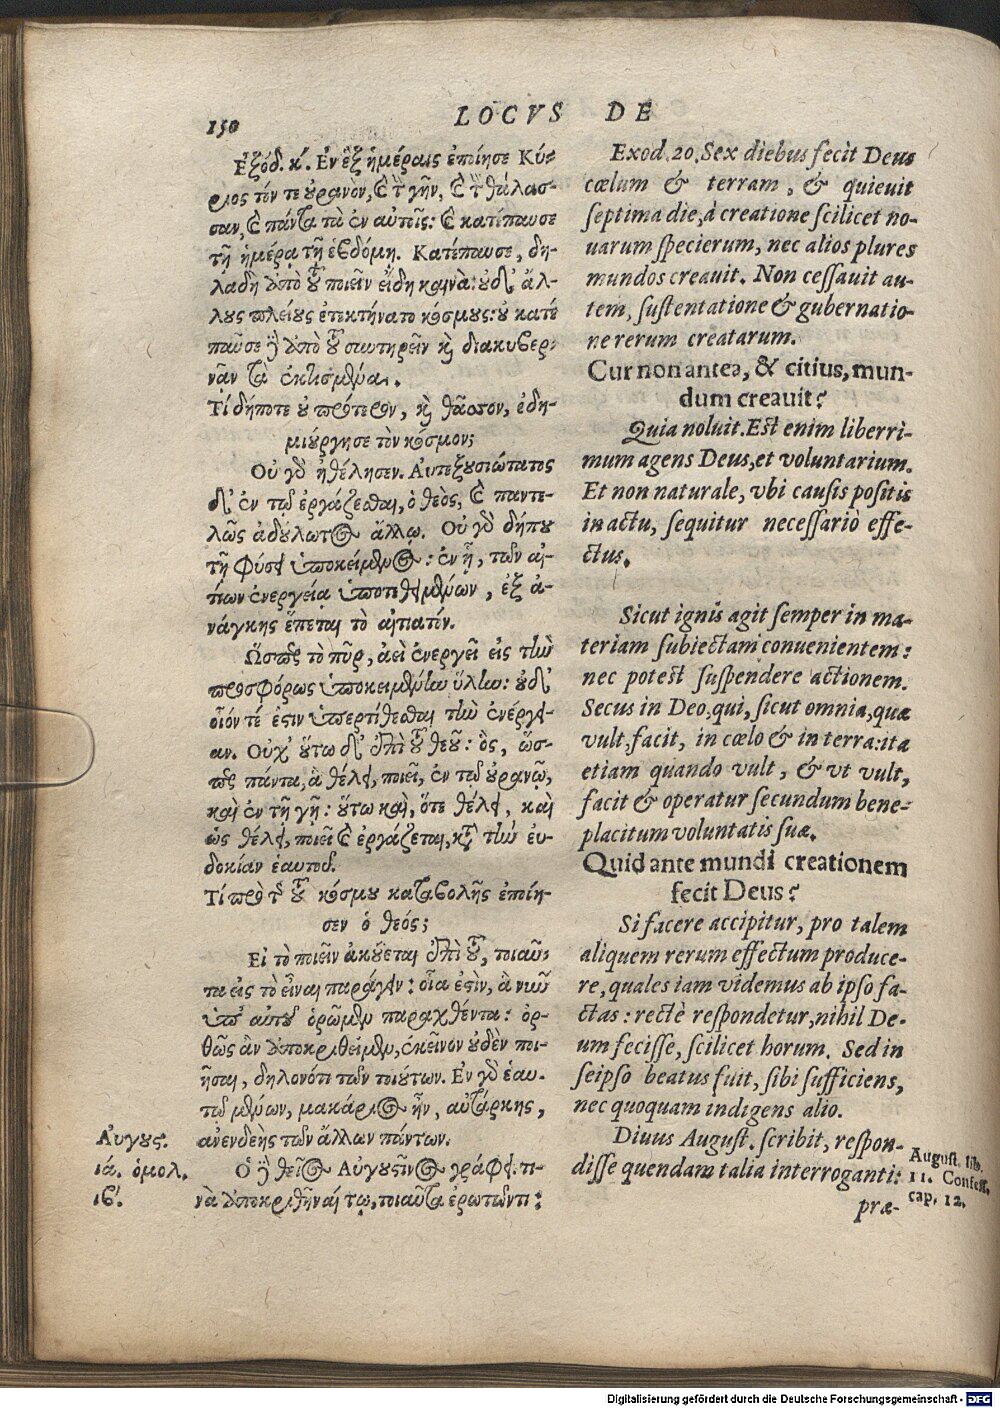 150
LOCVS DE
Ἐξόδ. κ΄. Ἐν ἓξ ἡμέραις ἐποίησε Κύ-
ριος τόν τε οὐρανὸν, καὶ τὴν γῆν, καὶ τὴν θάλασ-
σαν, καὶ πάντα τὰ ἐν αὐτοῖς: καὶ κατέπαυσε
τῇ ἡμέρᾳ τῇ ἑβδόμῃ. Κατέπαυσε, δη-
λαδὴ ἀπὸ τοῦ ποιεῖν εἴδη καινὰ: οὐδ' ἄλ-
λους πλείους ἐτεκτήνατο κόσμους: οὐ κατέ
παυσε δὲ ἀπὸ τοῦ συντηρεῖν καὶ διακυβερ-
νᾷν τὰ ἐκτισμένα.
Τί δήποτε οὐ πρότερον, καὶ θᾶττον, ἐδη-
μιούργησε τὸν κόσμον;
Οὐ γὰρ ἠθέλησεν. Αὐτεξουσιώτατος
δ' ἐν τῷ ἐργάζεσθαι, ὁ θεὸς, καὶ παντε-
λῶς ἀδούλωτος ἄλλῳ. Οὐ γὰρ δήπου
τῇ φύσει ὑποκείμενος: ἐν ᾗ, τῶν αἰ-
τίων ἐνεργείᾳ ὑποτιθεμένων, ἐξ ἀ-
νάγκης ἕπεται τὸ αἰτιατόν.
Ὥσπερ τὸ πῦρ, ἀεὶ ἐνεργεῖ εἰς τὴν
προσφόρως ὑποκειμένην ὕλην: οὐδ'
οἷόν τέ ἐστιν ὑπερτίθεσθαι τὴν ἐνέργει-
αν. Οὐχ' οὕτω δ' ἐπὶ τοῦ θεοῦ: ὃς, ὥσ-
περ πάντα, ἃ θέλει, ποιεῖ, ἐν τῷ οὐρανῷ,
καὶ ἐν τῇ γῇ: οὕτω καὶ, ὅτε θέλει, καὶ
ὡς θέλει, ποιεῖ καὶ ἐργάζεται, κατὰ τὴν εὐ-
δοκίαν ἑαυτοῦ.
Τί πρὸ τῆς τοῦ κόσμου καταβολῆς ἐποίη-
σεν ὁ θεός;
Εἰ τὸ ποιεῖν ἀκούεται ἐπὶ τοῦ, τοιαῦ-
τα εἰς τὸ εἶναι παράγειν: οἷα ἐστὶν, ἃ νῦν
ὑπ' αὐτοῦ ὁρῶμεν παραχθέντα: ὀρ-
θῶς ἂν ἀποκριθείημεν, ἐκεῖνον οὐδὲν ποι-
ῆσαι, δηλονότι τῶν τοιούτων. Ἐν γὰρ ἑαυ-
τῷ μένων, μακάριος ἦν, αὐτάρκης,
ἀνενδεὴς τῶν ἄλλων πάντων.
Ὁ δὲ θεῖος Αὐγουστῖνος γράφει τι-
νὰ ἀποκριθῆναί τῳ, τοιαῦτα ἐρωτῶντι:
Αὐγους.
ιά. ὁμολ.
ιβ΄.
Exod. 20. Sex diebus fecit Deus
cœlum & terram, & quieuit
septima die, à creatione scilicet no-
uarum specierum, nec alios plures
mundos creauit. Non cessauit au-
tem, sustentatione & gubernatio-
ne rerum creatarum.
Cur non antea, & citius, mun-
dum creauit?
Quia noluit. Est enim liberri-
mum agens Deus, et voluntarium.
Et non naturale, vbi causis positis
in actu, sequitur necessariò effe-
ctus.
Sicut ignis agit semper in ma-
teriam subiectam conuenientem:
nec potest suspendere actionem.
Secus in Deo, qui, sicut omnia, quæ
vult, facit, in cœlo & in terra: ita
etiam quando vult, & vt vult,
facit & operatur secundum bene-
placitum voluntatis suæ.
Quid ante mundi creationem
fecit Deus?
Si facere accipitur, pro talem
aliquem rerum effectum produce-
re, quales iam videmus ab ipso fa-
ctas: rectè respondetur, nihil De-
um fecisse, scilicet horum. Sed in
seipso beatus fuit, sibi sufficiens,
nec quoquam indigens alio.
Diuus August. scribit, respon-
disse quendam talia interroganti:
præ-
August. lib.
11. Confess.
cap. 12.
Digitalisierung gefördert durch die Deutsche Forschungsgemeinschaft - DFG